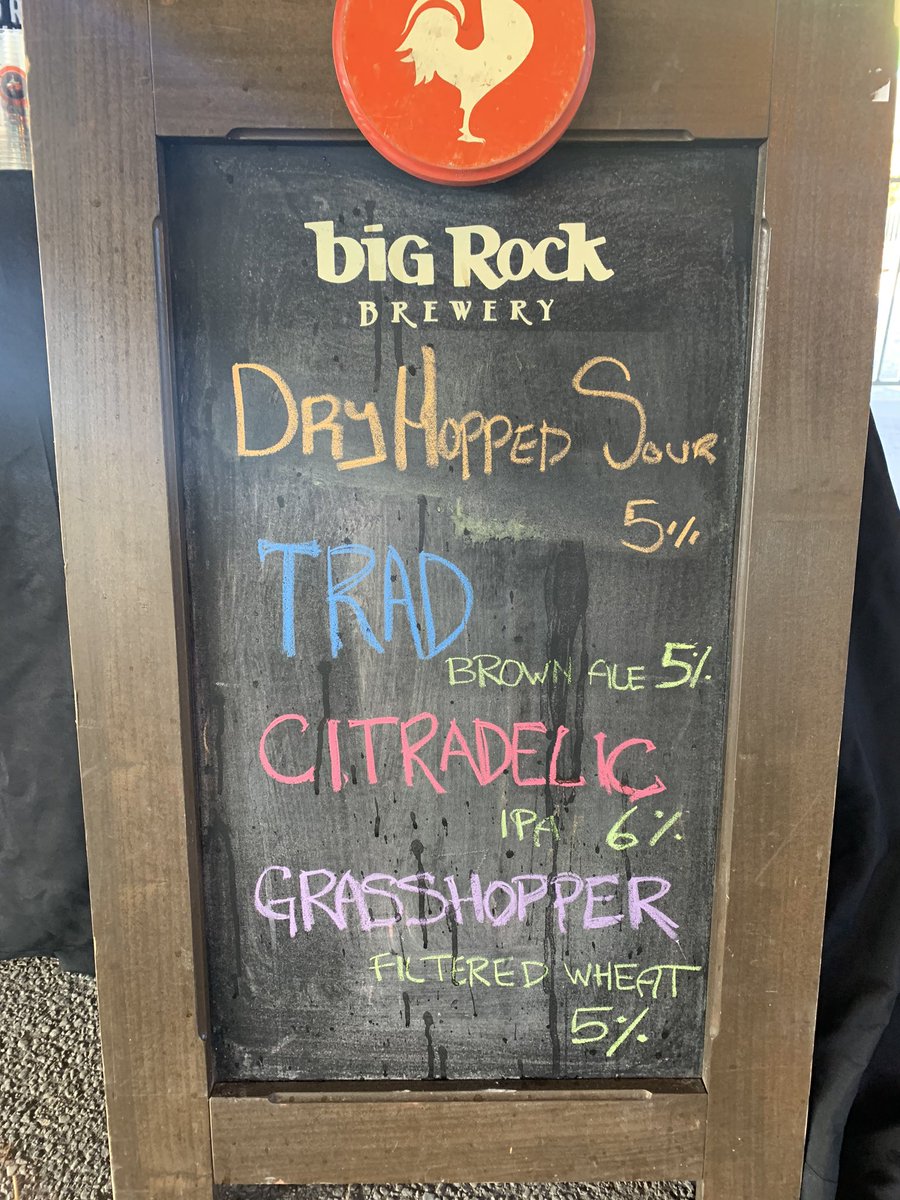 big Rock
BREWERY
DRY HOPPED SOUR
5%
TRAD
BROWN ALE 5%
CITRADELIC
IPA 6%
GRASSHOPPER
FILTERED WHEAT
5%